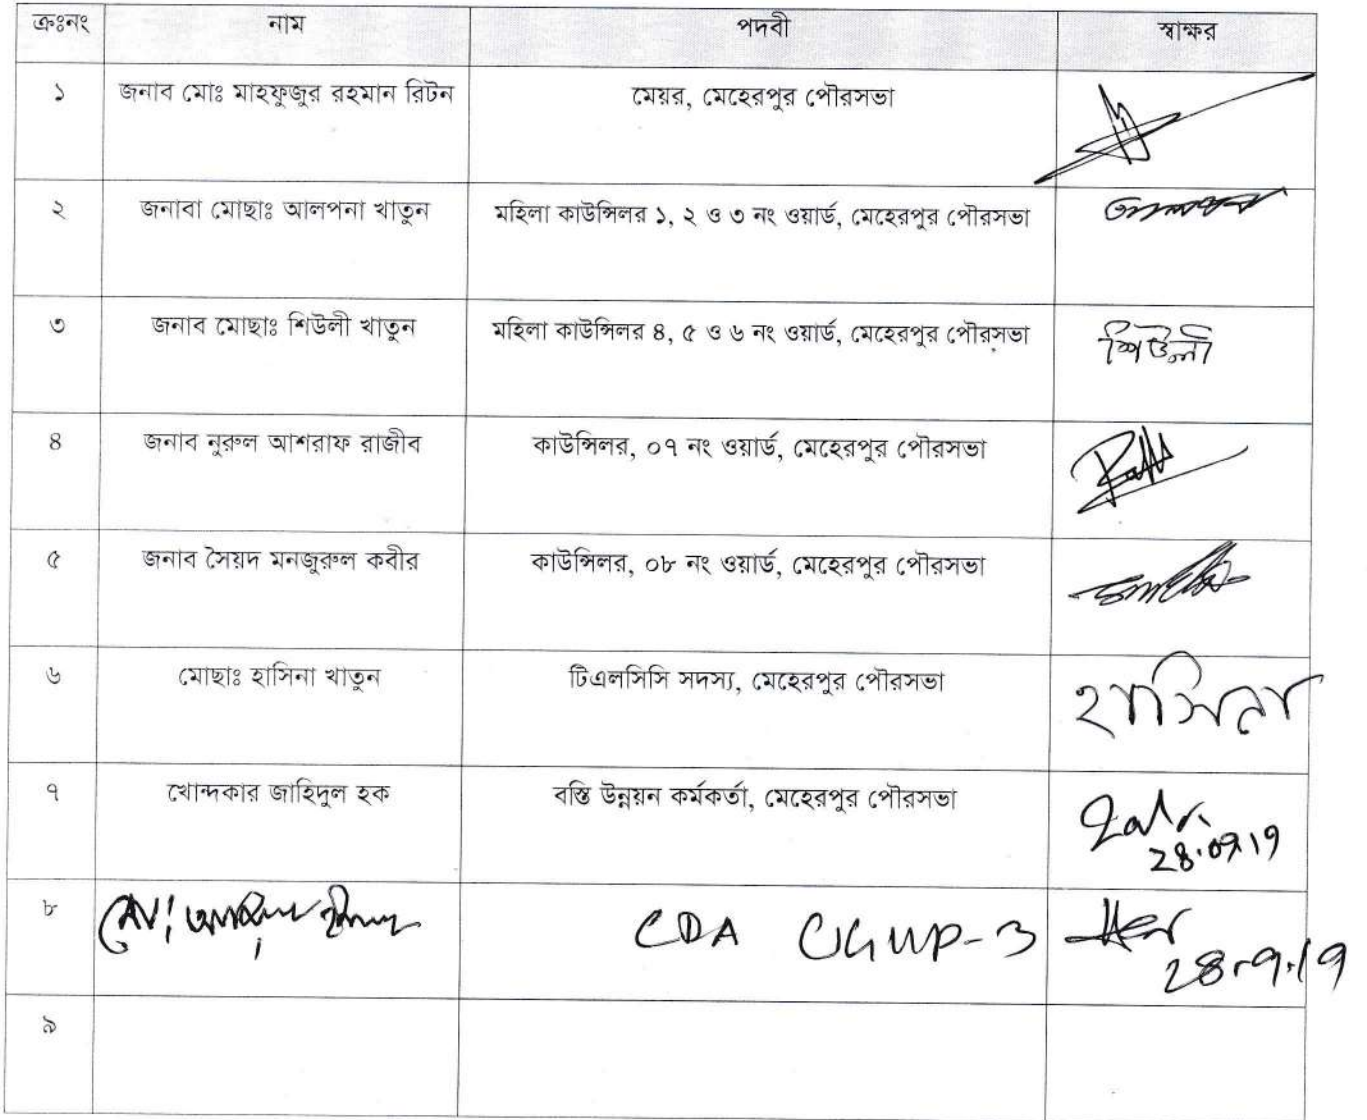 ক্রঃনং নাম পদবী স্বাক্ষর
১ জনাব মোঃ মাহফুজুর রহমান রিটন মেয়র, মেহেরপুর পৌরসভা
২ জনাবা মোছাঃ আলপনা খাতুন মহিলা কাউন্সিলর ১, ২ ও ৩ নং ওয়ার্ড, মেহেরপুর পৌরসভা
৩ জনাব মোছাঃ শিউলী খাতুন মহিলা কাউন্সিলর ৪, ৫ ও ৬ নং ওয়ার্ড, মেহেরপুর পৌরসভা শিউলী
৪ জনাব নুরুল আশরাফ রাজীব কাউন্সিলর, ০৭ নং ওয়ার্ড, মেহেরপুর পৌরসভা
৫ জনাব সৈয়দ মনজুরুল কবীর কাউন্সিলর, ০৮ নং ওয়ার্ড, মেহেরপুর পৌরসভা
৬ মোছাঃ হাসিনা খাতুন টিএলসিসি সদস্য, মেহেরপুর পৌরসভা হাসিনা
৭ খোন্দকার জাহিদুল হক বস্তি উন্নয়ন কর্মকর্তা, মেহেরপুর পৌরসভা
28.09.19
৮ মোঃ CDA
28.9.19
৯